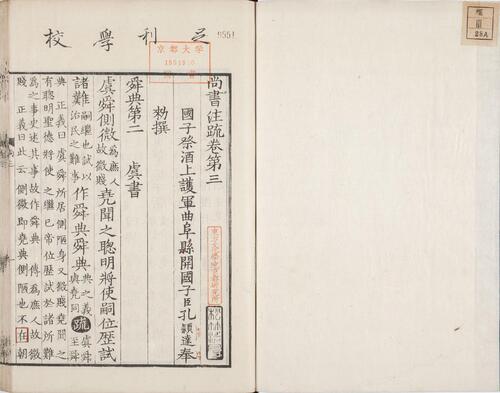 足利學校
9551
京都大学
1551310
圖書
尚書注疏卷第三
國子祭酒上護軍曲阜縣開國子臣孔穎達奉
勑撰
舜典第二 虞書
虞舜側微為庶人故微賤堯聞之聰明將使嗣位歷試
諸難嗣繼也試以治民之難事作舜典舜典典之義與堯同疏虞舜至舜
典 正義曰虞舜所居側陋身又微賤堯聞之
有聰明聖德將使之繼已帝位歷試於諸所難
為之事史述其事故作舜典 傳為庶人故微
賤 正義曰此云側微即堯典側陋也不在朝